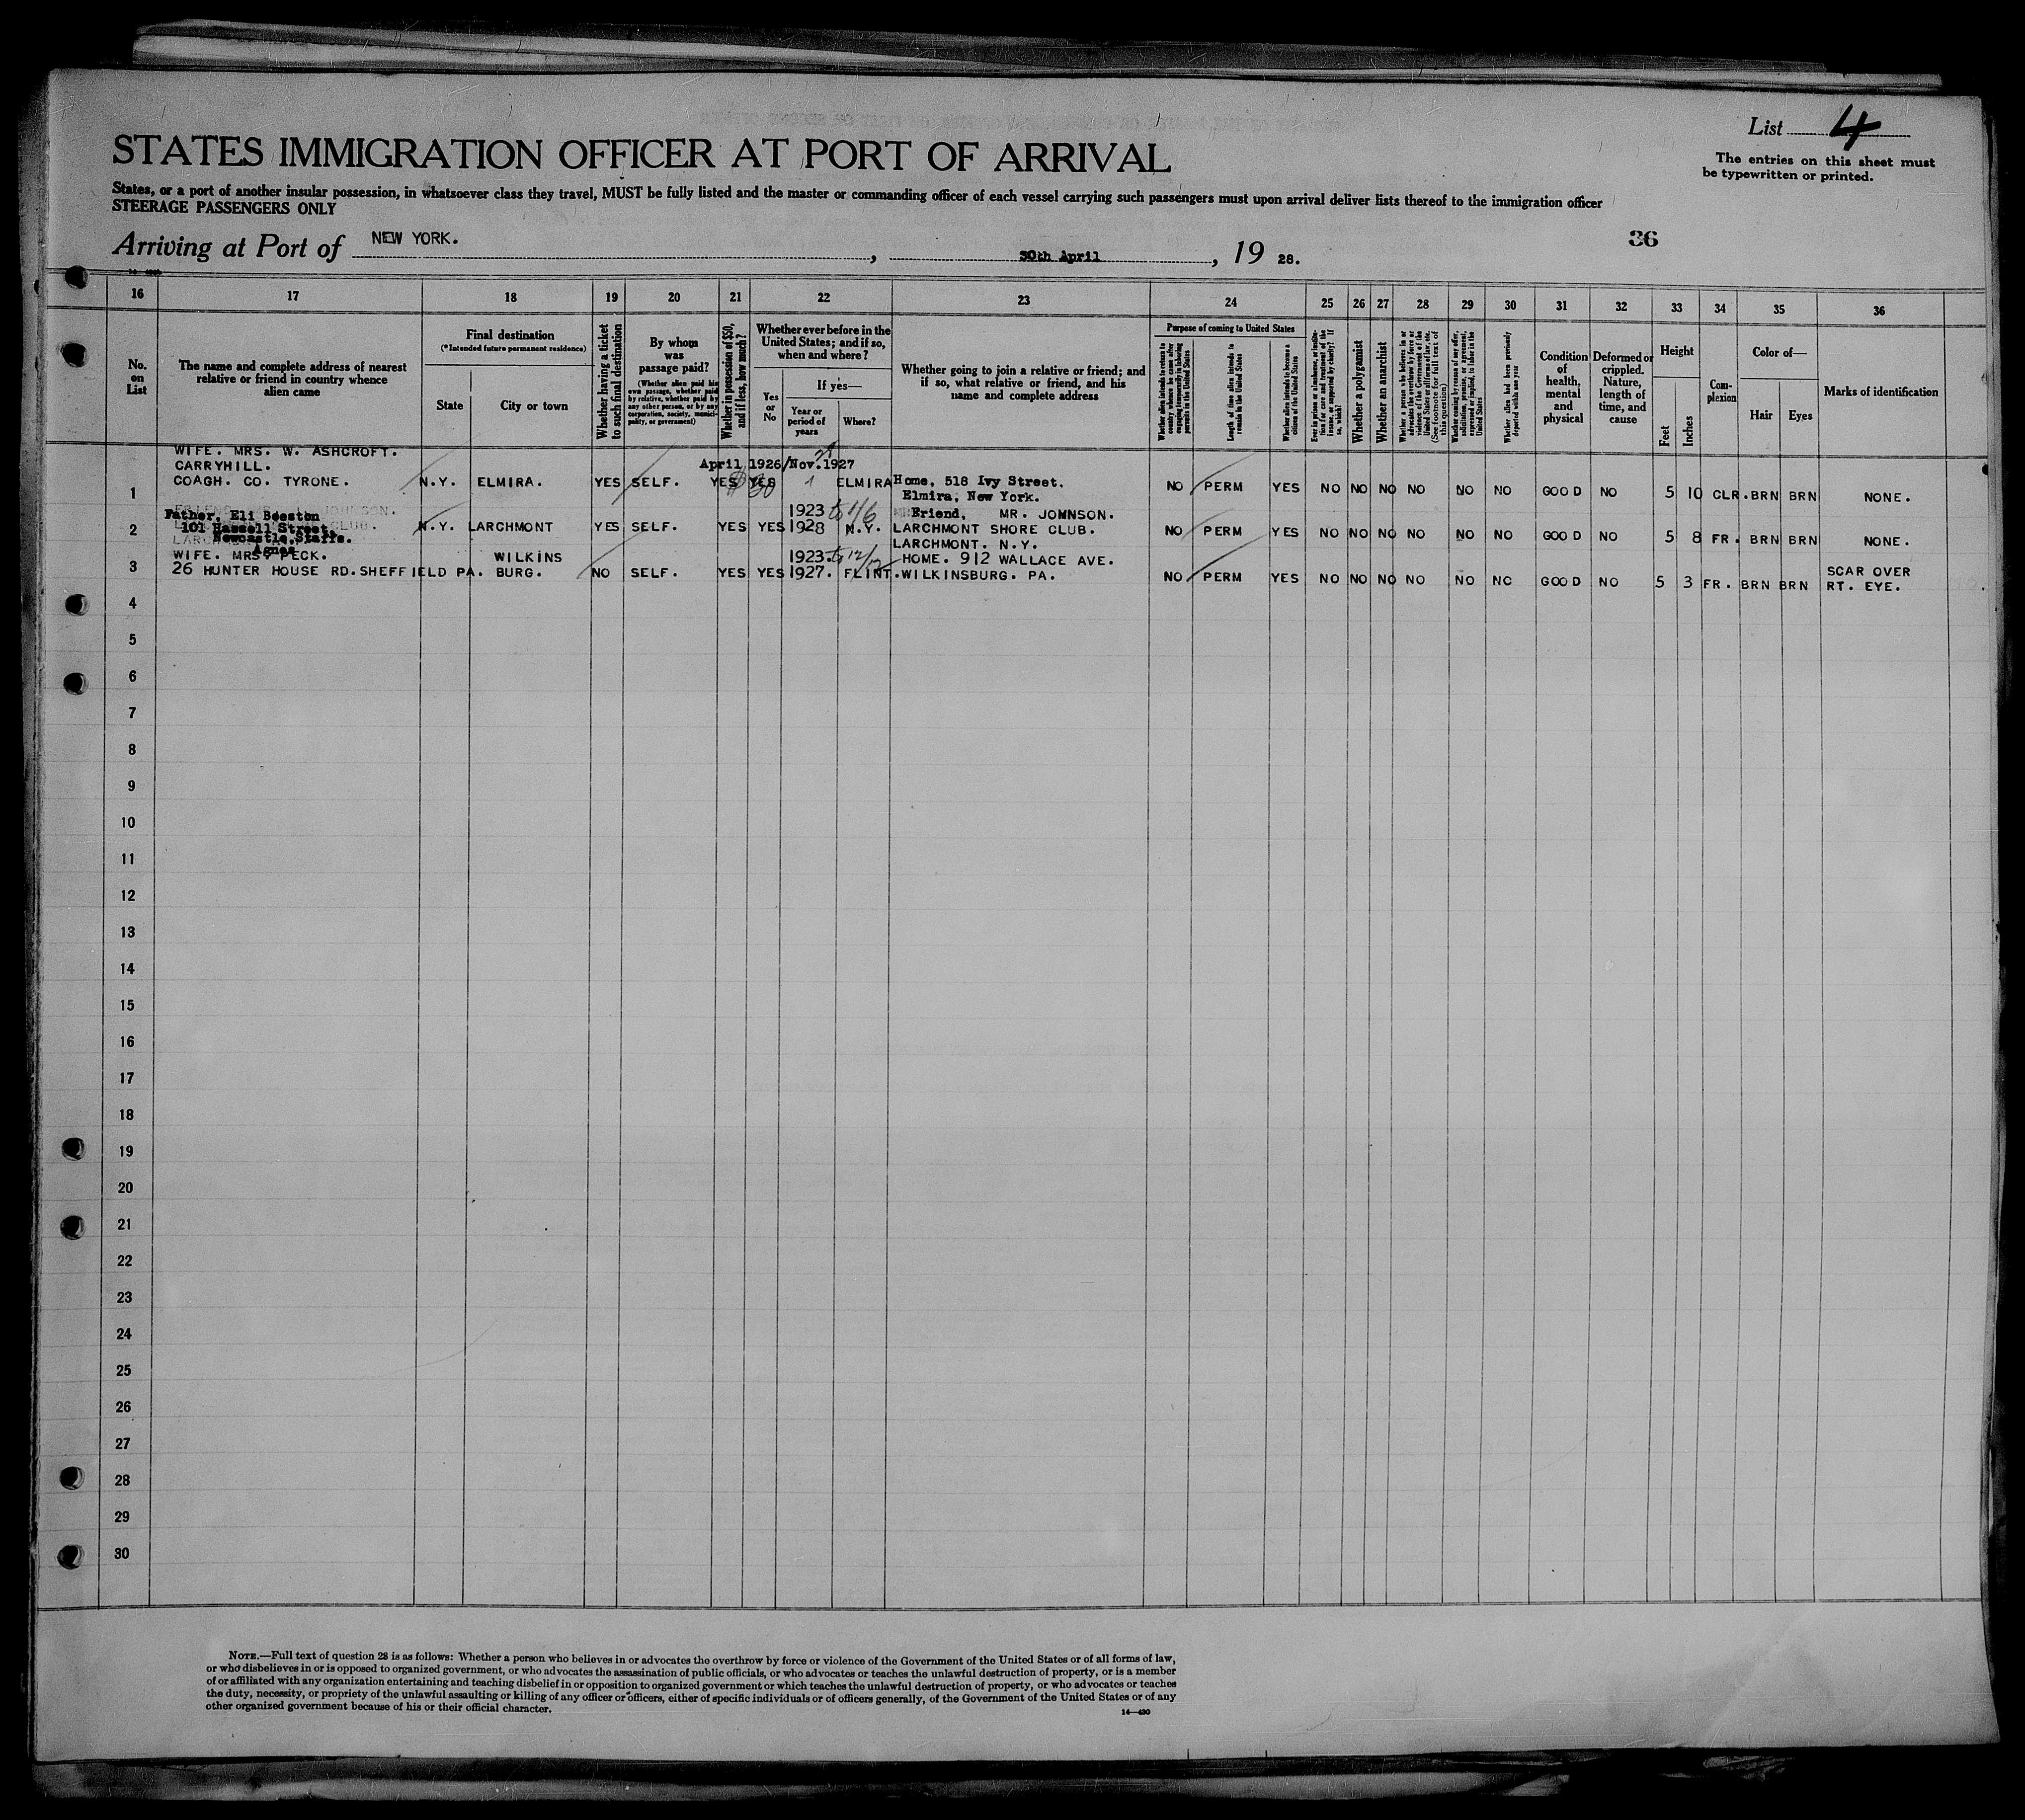 List 4
The entries on this sheet must
be typewritten or printed.
STATES IMMIGRATION OFFICER AT PORT OF ARRIVAL
States, or a port of another insular possession, in whatsoever class they travel, MUST be fully listed and the master or commanding officer of each vessel carrying such passengers must upon arrival deliver lists thereof to the immigration officer
STEERAGE PASSENGERS ONLY
36
Arriving at Port of NEW YORK. , 30th April , 19 28.
16 17 18 19 20 21 22 23 24 25 26 27 28 29 30 31 32 33 34 35 36
No.
on
List
The name and complete address of nearest
relative or friend in country whence
alien came
Final destination
(*Intended future permanent residence)
State
City or town
Whether having a ticket
to such final destination
By whom
was
passage paid?
(Whether alien paid his
own passage, whether paid
by relative, whether paid by
any other person, or by any
corporation, society, munici-
pality, or government)
Whether in possession of $50,
and if less, how much?
Whether ever before in the
United States; and if so,
when and where?
Yes
or
No
If yes—
Year or
period of
years
Where?
Whether going to join a relative or friend; and
if so, what relative or friend, and his
name and complete address
Purpose of coming to United States
Whether alien intends to return to
country whence he came after
engaging temporarily in laboring
pursuits in the United States
Length of time alien intends to
remain in the United States
Whether alien intends to become a
citizen of the United States
Ever in prison or almshouse, or institu-
tion for care and treatment of the
insane, or supported by charity? If
so, which?
Whether a polygamist
Whether an anarchist
Whether a person who believes in or
advocates the overthrow by force or
violence of the Government of the
United States or all forms of law, etc.
(See footnote for full text of
this question)
Whether coming by reason of any offer,
solicitation, promise, or agreement,
expressed or implied, to labor in the
United States
Whether alien had been previously
deported within one year
Condition
of
health,
mental
and
physical
Deformed or
crippled.
Nature,
length of
time, and
cause
Height
Feet
Inches
Com-
plexion
Color of—
Hair
Eyes
Marks of identification
WIFE. MRS. W. ASHCROFT.
CARRYHILL. April 1926/Nov. 1927
1 COAGH. CO. TYRONE. N.Y. ELMIRA. YES SELF. YES $30 YES ELMIRA Home, 518 Ivy Street. NO PERM YES NO NO NO NO NO NO GOOD NO 5 10 CLR. BRN BRN NONE.
Elmira, New York.
Father, Eli Beeston 1923 to 1/6 Friend, MR. JOHNSON.
2 101 Hassell Street, N.Y. LARCHMONT YES SELF. YES YES 1928 N.Y. LARCHMONT SHORE CLUB. NO PERM YES NO NO NO NO NO NO GOOD NO 5 8 FR. BRN BRN NONE.
Newcastle, Staffs. LARCHMONT. N.Y.
Agnes
WIFE. MRS PECK. WILKINS 1923. to 12/12 HOME. 912 WALLACE AVE.
3 26 HUNTER HOUSE RD. SHEFFIELD PA. BURG. NO SELF. YES YES 1927. FLINT. WILKINSBURG. PA. NO PERM YES NO NO NO NO NO NO GOOD NO 5 3 FR. BRN BRN SCAR OVER
RT. EYE.
4
5
6
7
8
9
10
11
12
13
14
15
16
17
18
19
20
21
22
23
24
25
26
27
28
29
30
NOTE.—Full text of question 28 is as follows: Whether a person who believes in or advocates the overthrow by force or violence of the Government of the United States or of all forms of law,
or who disbelieves in or is opposed to organized government, or who advocates the assassination of public officials, or who advocates or teaches the unlawful destruction of property, or is a member
of or affiliated with any organization entertaining and teaching disbelief in or opposition to organized government or which teaches the unlawful destruction of property, or who advocates or teaches
the duty, necessity, or propriety of the unlawful assaulting or killing of any officer or officers, either of specific individuals or of officers generally, of the Government of the United States or of any
other organized government because of his or their official character.
14—430